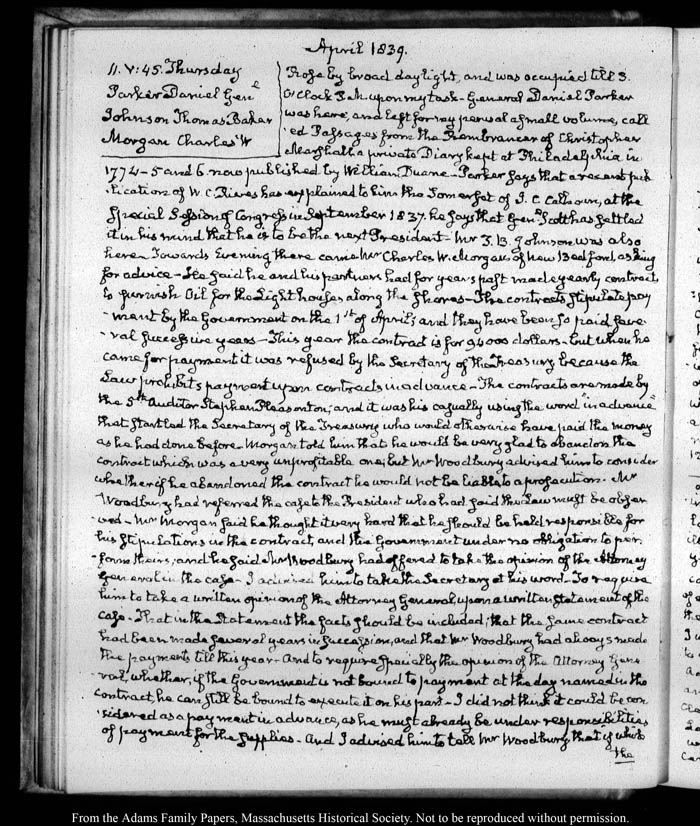 April 1839.
11. V:45. Thursday
Parker Daniel Genl
Johnson Thomas Baker
Morgan Charles W
Rose by broad daylight, and was occupied till 3.
O'Clock P.M. upon my task. General Daniel Parker
was here, and left for my perusal a small volume, call
'ed Passages from the Remembrancer of Christopher
Marshall a private Diary kept at Philadelphia in
1774-5 and 6 now published by William Duane. Parker says that a recent pub
'lication of W. C. Rives has explained to him the Somerset of J. C. Calhoun, at the
Special Session of Congress in September 1837. he says that Genl Scott has settled
it in his mind that he is to be the next President. Mr T. B. Johnson was also
here. Towards Evening there came Mr Charles W. Morgan of New Bedford, asking
for advice. He said he and his partners had for years past made yearly contracts
to furnish Oil for the Light houses along the shores. The contracts stipulate pay
'ment by the Government on the 1st of April; and they have been so paid seve
'ral successive years. This year the contract is for 94000 dollars. but when he
came for payment it was refused by the Secretary of the Treasury because the
Law prohibits payment upon contracts in advance. The contracts are made by
the 5th Auditor Stephen Pleasonton, and it was his casually using the word "in advance"
that startled the Secretary of the Treasury who would otherwise have paid the money
as he had done before. Morgan told him that he would be very glad to abandon the
contract which was a very unprofitable one; but Mr Woodbury advised him to consider
whether if he abandoned the contract he would not be liable to a prosecution. Mr
Woodbury had referred the case to the President who had said the Law must be obser
'ved. Mr Morgan said he thought it very hard that he should be held responsible for
his stipulations in the contract, and the Government under no obligation to per
'form theirs; and he said Mr Woodbury had offered to take the opinion of the Attorney
General in the case. I advised him to take the Secretary at his word. To require
him to take a written opinion of the Attorney General upon a written statement of the
case. That in the statement the facts should be included; that the same contract
had been made several years in succession, and that Mr Woodbury had always made
the payments till this year. And to require specially the opinion of the Attorney Gene
'ral, whether, if the Government is not bound to payment at the day named in the
contract, he can still be bound to execute it on his part. I did not think it could be con
'sidered as a payment in advance, as he must already be under responsibilities
of payment for the supplies. And I advised him to tell Mr Woodbury that if while
the
From the Adams Family Papers, Massachusetts Historical Society. Not to be reproduced without permission.